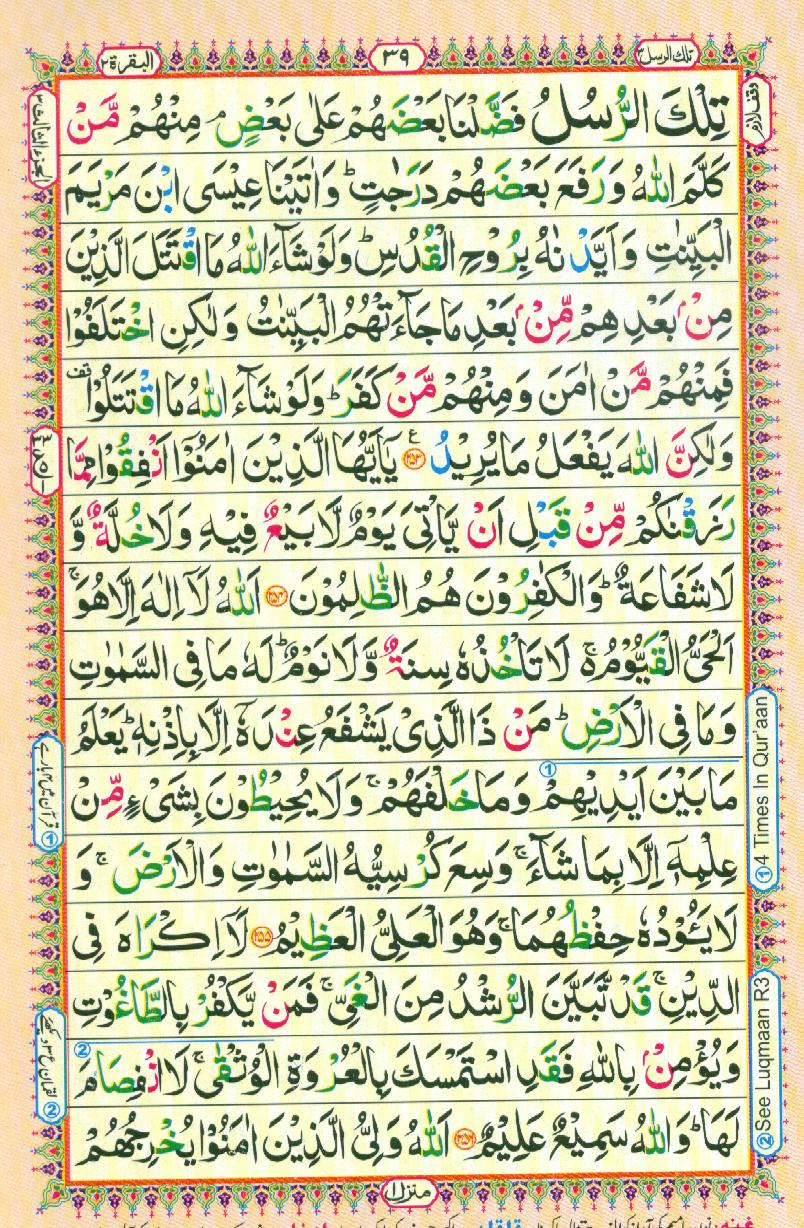 تلك الرسل ٣
٣٩
البقرة ٢
وقف لازم
الجزء الثالث ٣
تِلْكَ الرُّسُلُ فَضَّلْنَا بَعْضَهُمْ عَلٰی بَعْضٍ ۘ مِنْهُمْ مَّنْ
كَلَّمَ اللّٰهُ وَرَفَعَ بَعْضَهُمْ دَرَجٰتٍ ؕ وَاٰتَيْنَا عِيْسَی ابْنَ مَرْيَمَ
الْبَيِّنٰتِ وَاَيَّدْنٰهُ بِرُوْحِ الْقُدُسِ ؕ وَلَوْ شَآءَ اللّٰهُ مَا اقْتَتَلَ الَّذِيْنَ
مِنْۢ بَعْدِهِمْ مِّنْۢ بَعْدِ مَا جَآءَتْهُمُ الْبَيِّنٰتُ وَلٰكِنِ اخْتَلَفُوْا
فَمِنْهُمْ مَّنْ اٰمَنَ وَمِنْهُمْ مَّنْ كَفَرَ ؕ وَلَوْ شَآءَ اللّٰهُ مَا اقْتَتَلُوْا ۟قف
وَلٰكِنَّ اللّٰهَ يَفْعَلُ مَا يُرِيْدُ ﴿۲۵۳﴾ ع يٰۤاَيُّهَا الَّذِيْنَ اٰمَنُوْۤا اَنْفِقُوْا مِمَّا
رَزَقْنٰكُمْ مِّنْ قَبْلِ اَنْ يَّاْتِیَ يَوْمٌ لَّا بَيْعٌ فِيْهِ وَلَا خُلَّةٌ وَّ
لَا شَفَاعَةٌ ؕ وَالْكٰفِرُوْنَ هُمُ الظّٰلِمُوْنَ ﴿۲۵۴﴾ اَللّٰهُ لَاۤ اِلٰهَ اِلَّا هُوَ ۚ
اَلْحَیُّ الْقَيُّوْمُ ۚ۬ لَا تَاْخُذُهٗ سِنَةٌ وَّلَا نَوْمٌ ؕ لَهٗ مَا فِی السَّمٰوٰتِ
وَمَا فِی الْاَرْضِ ؕ مَنْ ذَا الَّذِیْ يَشْفَعُ عِنْدَهٗۤ اِلَّا بِاِذْنِهٖ ؕ يَعْلَمُ
مَا بَيْنَ اَيْدِيْهِمْ ① وَمَا خَلْفَهُمْ ۚ وَلَا يُحِيْطُوْنَ بِشَیْءٍ مِّنْ
عِلْمِهٖۤ اِلَّا بِمَا شَآءَ ۚ وَسِعَ كُرْسِيُّهُ السَّمٰوٰتِ وَالْاَرْضَ ۚ وَ
لَا يَـُٔوْدُهٗ حِفْظُهُمَا ۚ وَهُوَ الْعَلِیُّ الْعَظِيْمُ ﴿۲۵۵﴾ لَاۤ اِكْرَاهَ فِی
الدِّيْنِ ۚ قَدْ تَّبَيَّنَ الرُّشْدُ مِنَ الْغَیِّ ۚ فَمَنْ يَّكْفُرْ بِالطَّاغُوْتِ
وَيُؤْمِنْۢ بِاللّٰهِ فَقَدِ اسْتَمْسَكَ بِالْعُرْوَةِ الْوُثْقٰی ② ۚ لَا انْفِصَامَ
لَهَا ؕ وَاللّٰهُ سَمِيْعٌ عَلِيْمٌ ﴿۲۵۶﴾ اَللّٰهُ وَلِیُّ الَّذِيْنَ اٰمَنُوْا يُخْرِجُهُمْ
① 4 Times In Qur'aan
② See Luqmaan R3
① قرآن میں ۴ بار ہے
② لقمان ع ۳ دیکھئے
منزل ١